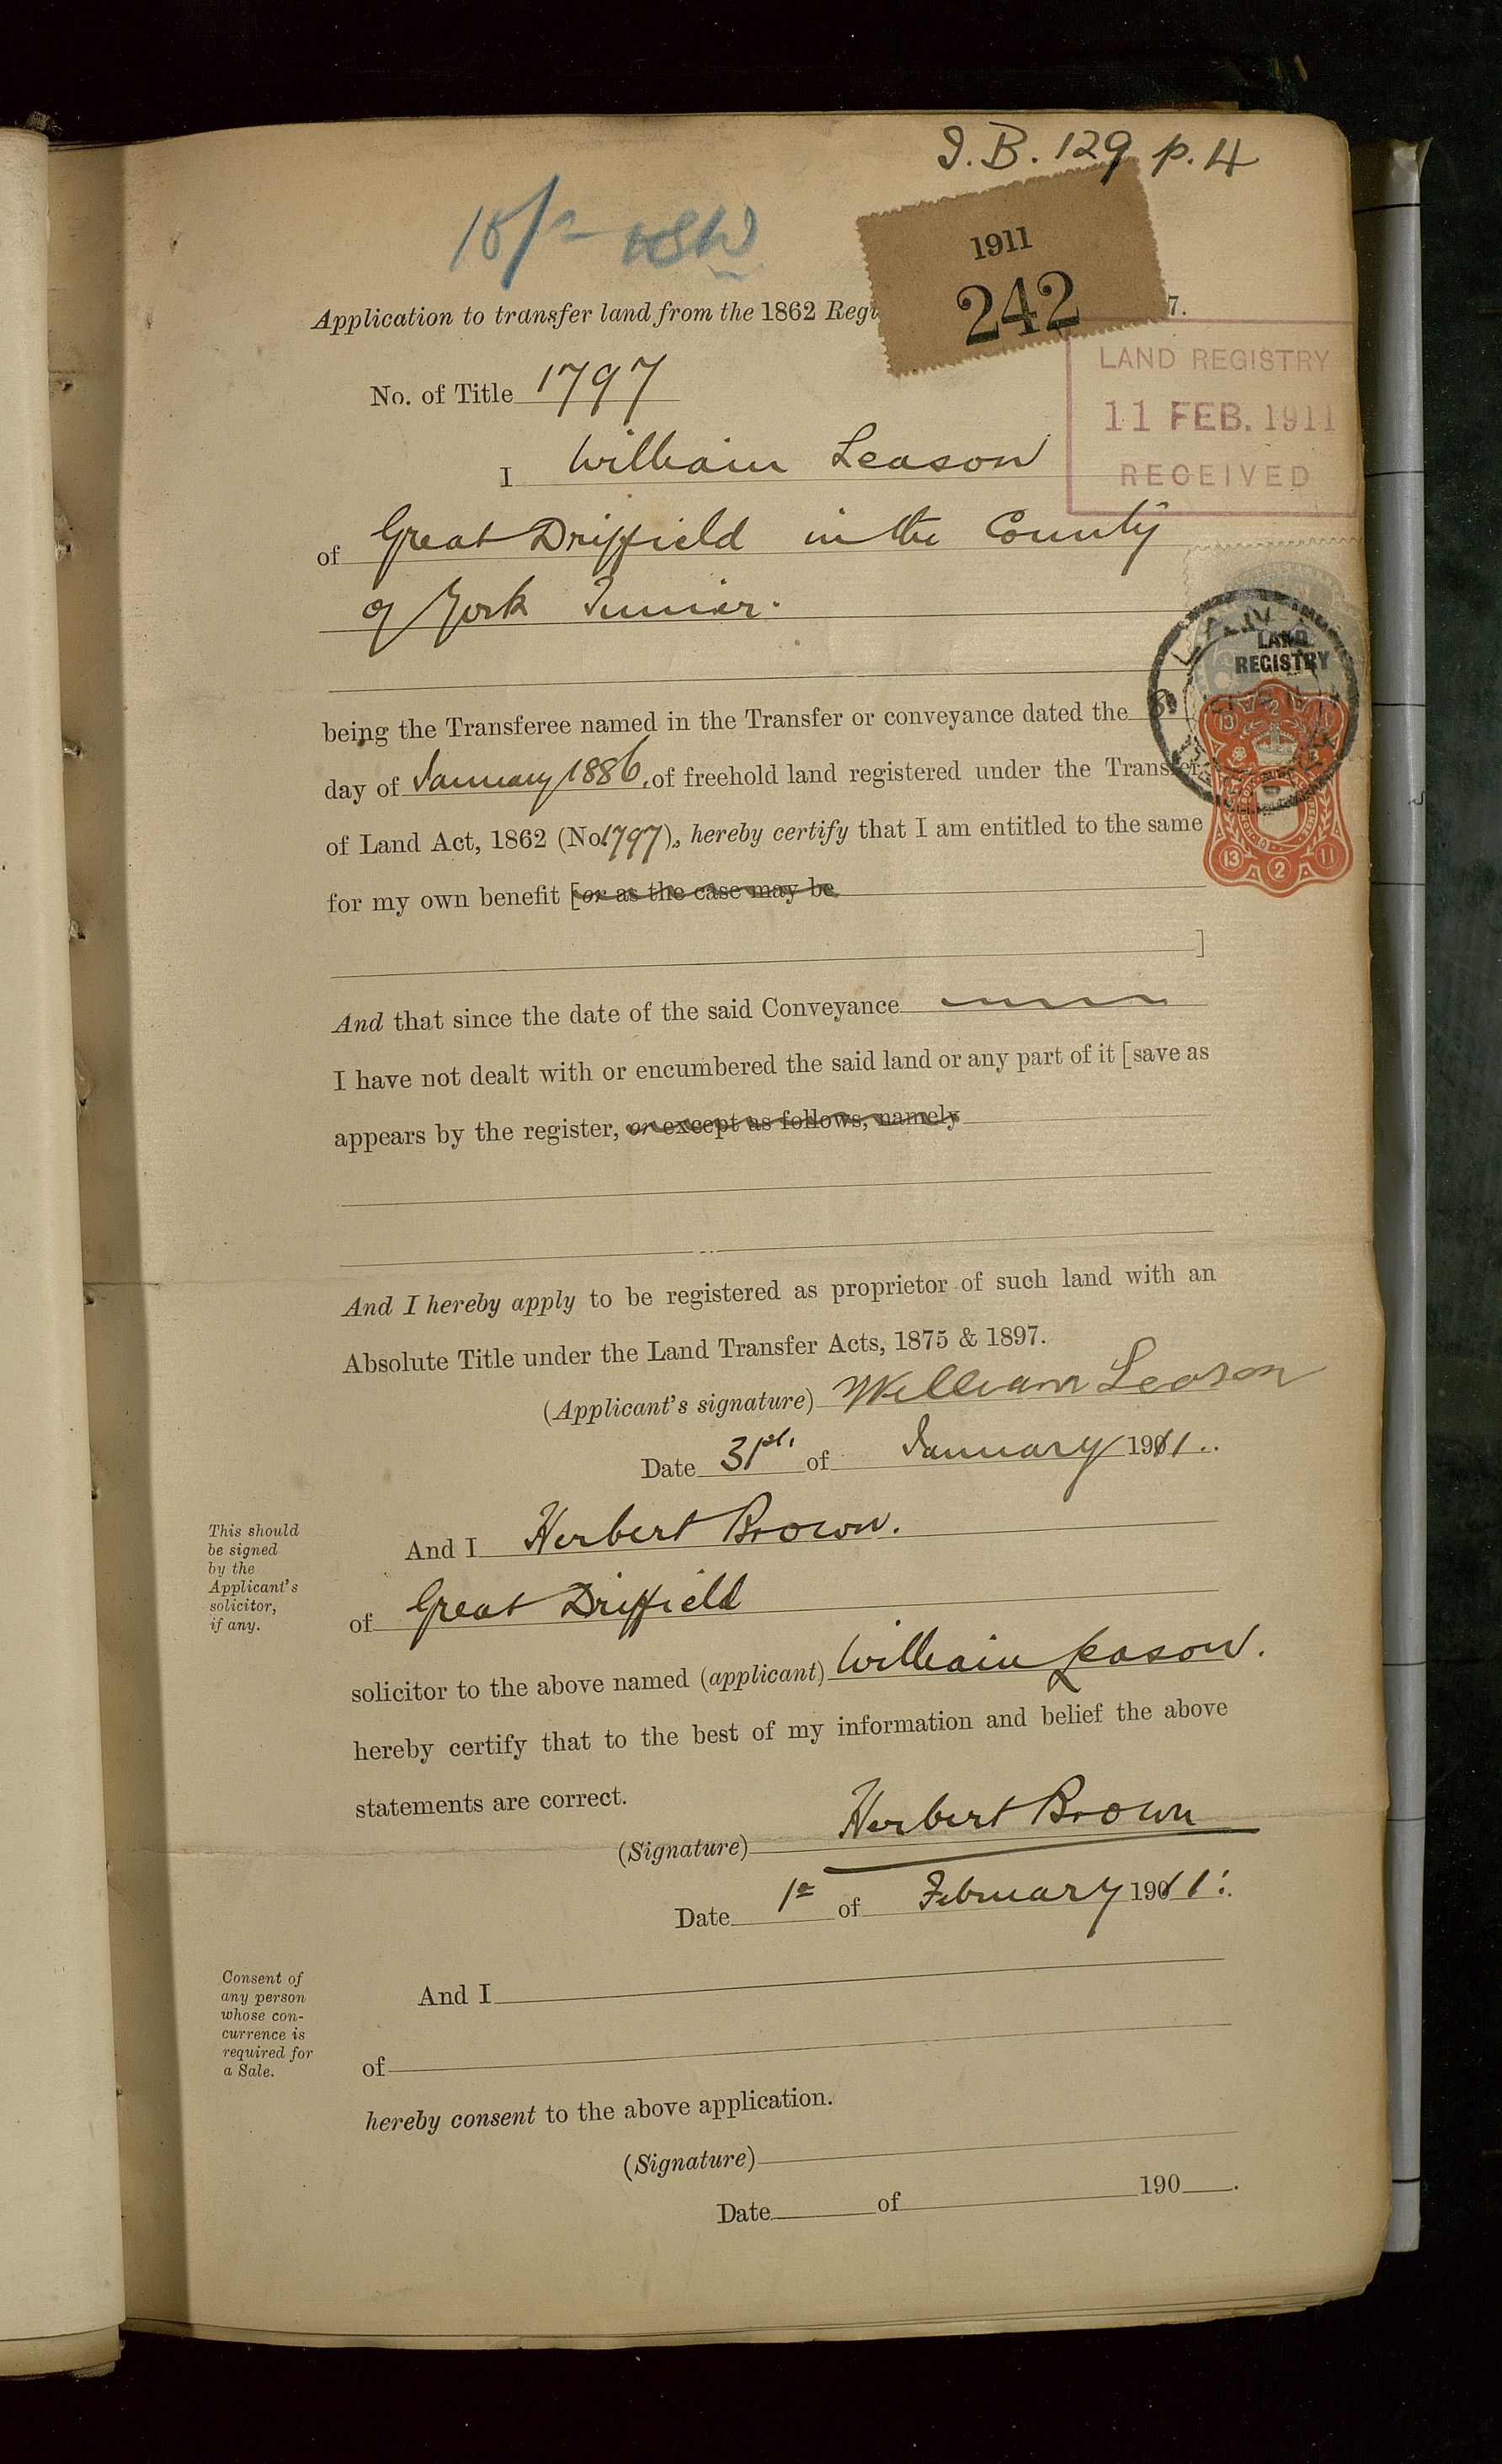 I.B. 129 p. 4
1911
242
Application to transfer land from the 1862 Regi
7.
LAND REGISTRY
11 FEB. 1911
RECEIVED
No. of Title 1797
I William Leason
of Great Driffield in the County
of York Junior.
LAND
REGISTRY
being the Transferee named in the Transfer or conveyance dated the
day of January 1886, of freehold land registered under the Transfer
of Land Act, 1862 (No. 1797), hereby certify that I am entitled to the same
for my own benefit [or as the case may be
]
And that since the date of the said Conveyance
I have not dealt with or encumbered the said land or any part of it [save as
appears by the register, or except as follows, namely
And I hereby apply to be registered as proprietor of such land with an
Absolute Title under the Land Transfer Acts, 1875 & 1897.
(Applicant's signature) William Leason
Date 31st. of January 1911.
This should
be signed
by the
Applicant's
solicitor,
if any.
And I Herbert Brown.
of Great Driffield
solicitor to the above named (applicant) William Leason.
hereby certify that to the best of my information and belief the above
statements are correct.
(Signature) Herbert Brown
Date 1st of February 1911.
Consent of
any person
whose con-
currence is
required for
a Sale.
And I
of
hereby consent to the above application.
(Signature)
Date of 190 .